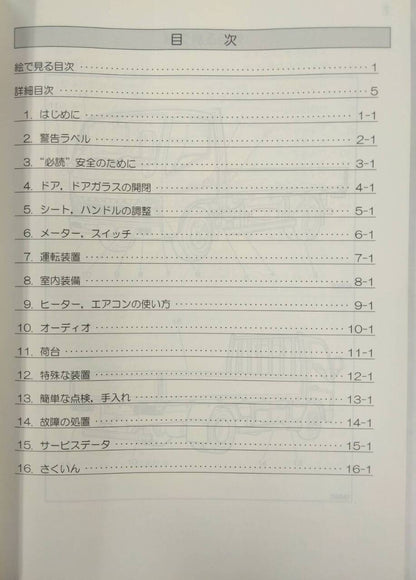 目 次
絵で見る目次 1
詳細目次 5
1. はじめに 1-1
2. 警告ラベル 2-1
3. “必読” 安全のために 3-1
4. ドア，ドアガラスの開閉 4-1
5. シート，ハンドルの調整 5-1
6. メーター，スイッチ 6-1
7. 運転装置 7-1
8. 室内装備 8-1
9. ヒーター，エアコンの使い方 9-1
10. オーディオ 10-1
11. 荷台 11-1
12. 特殊な装置 12-1
13. 簡単な点検，手入れ 13-1
14. 故障の処置 14-1
15. サービスデータ 15-1
16. さくいん 16-1